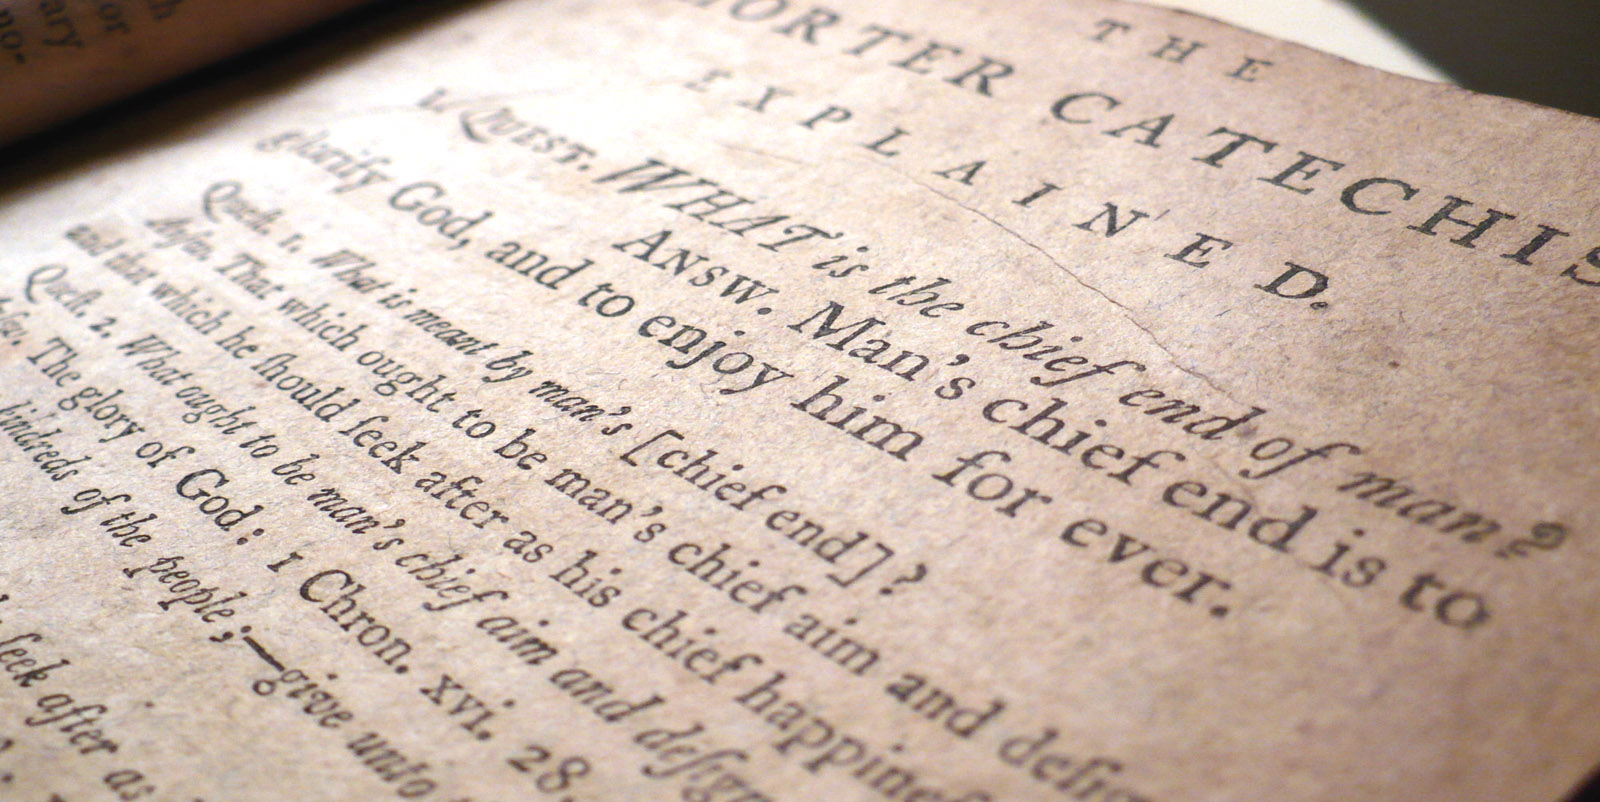 ary
or
no-
THE
ORTER CATECHIS
EXPLAINED.
1. QUEST. WHAT is the chief end of man?
ANSW. Man's chief end is to
glorify God, and to enjoy him for ever.
Queſt. 1. What is meant by man's [chief end]?
Anſw. That which ought to be man's chief aim and deſign
and that which he ſhould ſeek after as his chief happineſ
Queſt. 2. What ought to be man's chief aim and deſign
The glory of God: 1 Chron. xvi. 28,
kindreds of the people;—give unto
ſeek after as